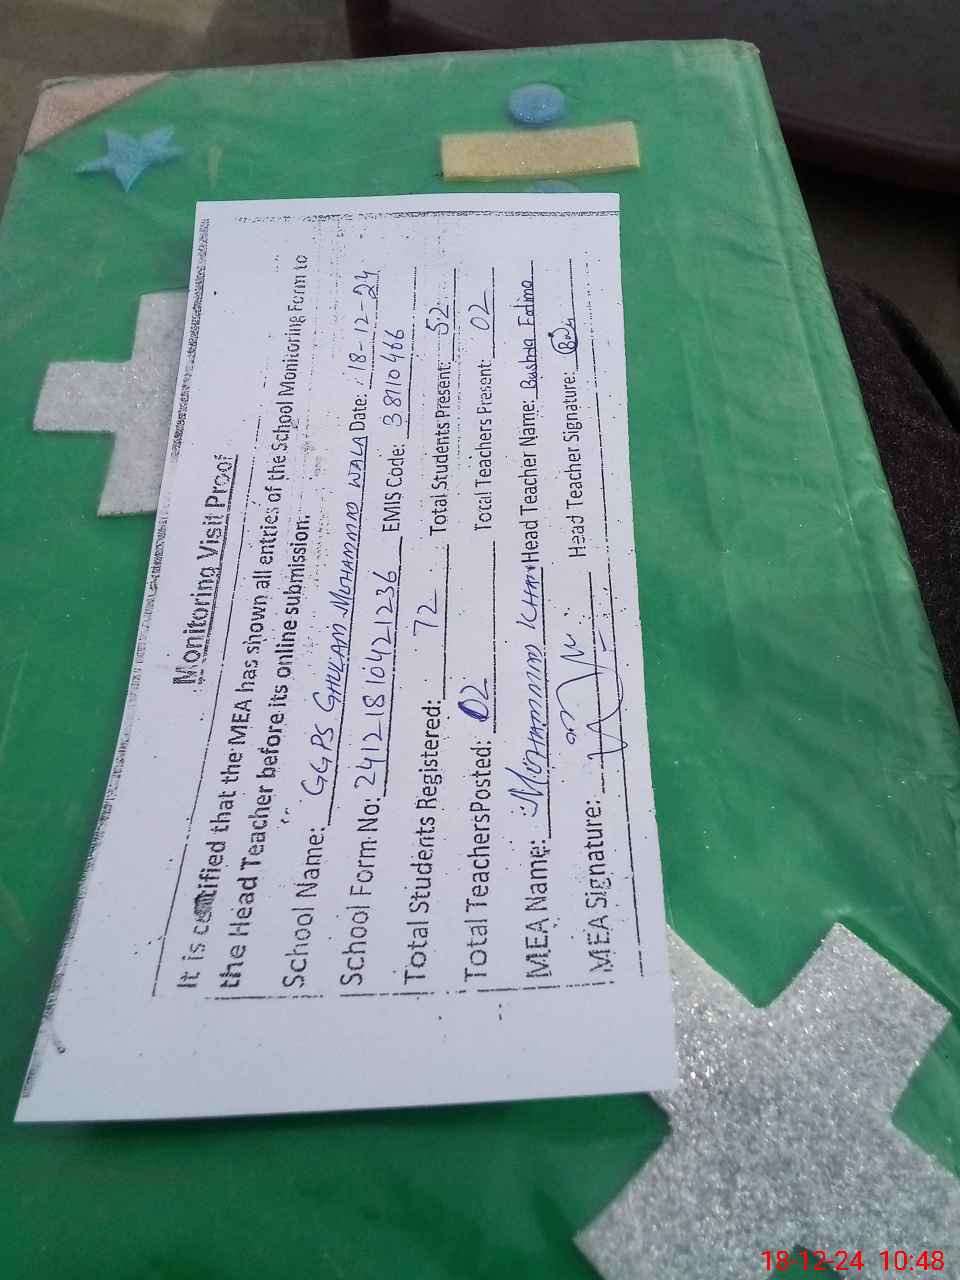 Monitoring Visit Proof
It is certified that the MEA has shown all entries of the School Monitoring Form to
the Head Teacher before its online submission.
School Name: GGPS GHULAM MUHAMMAD WALA Date: 18-12-24
School Form No: 24121810421236 EMIS Code: 38110466
Total Students Registered: 72 Total Students Present: 52
Total Teachers Posted: 02 Total Teachers Present: 02
MEA Name: MUHAMMAD KHAN Head Teacher Name: Bushra Fatima
MEA Signature: Head Teacher Signature:
18-12-24 10:48